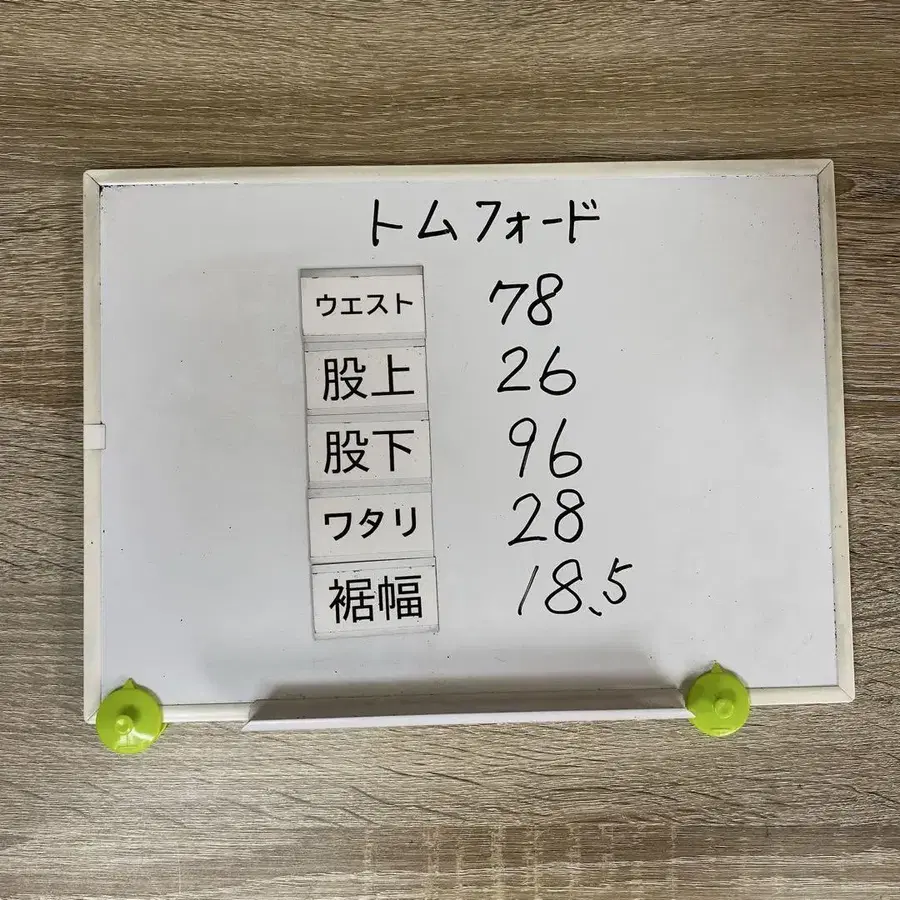 トムフォード
ウエスト 78
股上 26
股下 96
ワタリ 28
裾幅 18.5